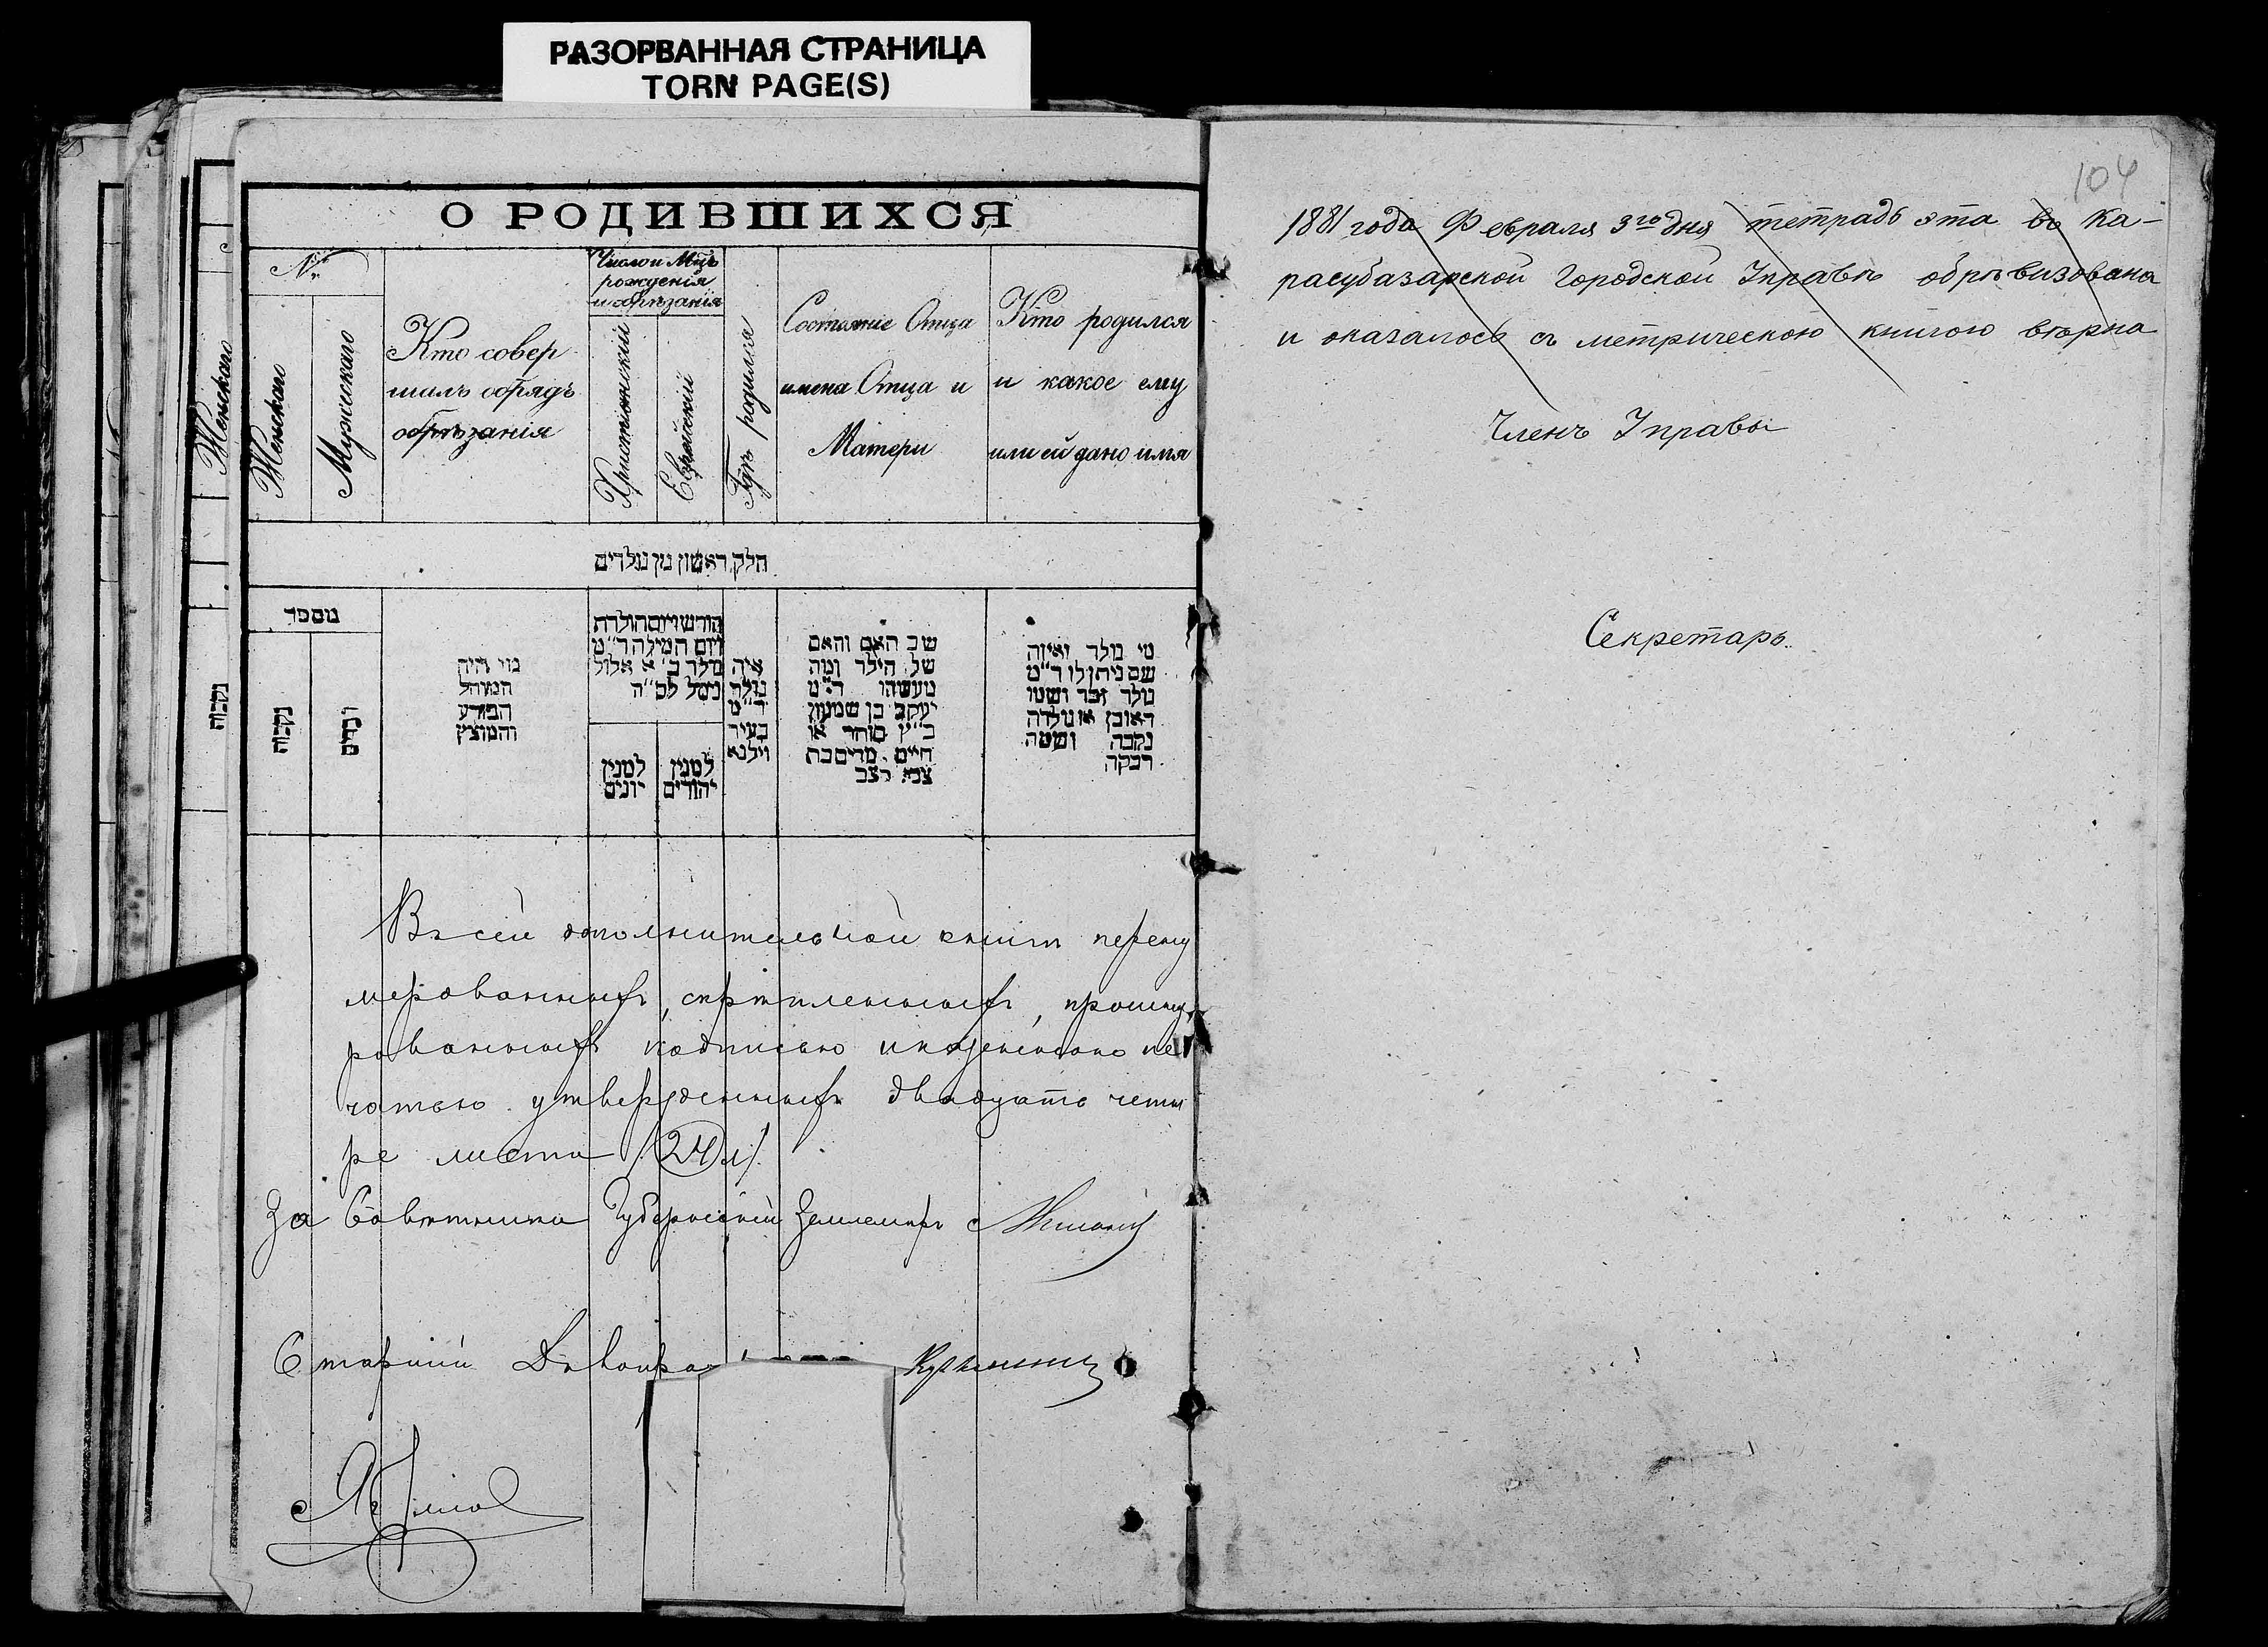 РАЗОРВАННАЯ СТРАНИЦА
TORN PAGE(S)
О РОДИВШИХСЯ
№
Женскаго
Женскаго
Мужескаго
Кто совер
шилъ обрядъ
обрѣзанія
Число и Мѣц
рожденія
и обрѣзанія
Христіанскій
Еврейскій
Гдѣ родился
Состояніе Отца
имена Отца и
Матери
Кто родился
и какое ему
или ей дано имя
חלק ראשון מן נולדים
מספר
נקבות
נקבות
זכרים
מי היה
המוהל
הפורע
והמוצץ
חודש ויום הולדת
ויום המילה ד״מ
נולד ב׳ א אלול
נימל
למנין
יונים
למנין
יהודים
איה
נולד
ד״מ
בעיר
ווילנא
שם האב והאם
של הילד ומה
מעשהו ד״מ
יעקב בן שמעון
כ״ץ סוחר או
חייט מרים בת
צבי
מי נולד ואיזה
שם ניתן לו ד״מ
נולד זכר ושמו
ראובן או נולדה
נקבה ושמה
רבקה
Въ сей дополнительной книгѣ перену
мерованныхъ, скрѣпленныхъ, прошну
рованныхъ надписью и казенною пе
чатью утвержденныхъ двадцать четы
ре листа /24 л/.
За Совѣтника Губернскій Землемѣръ
Старшій Дѣлопро
104
1881 года Февраля 3го дня тетрадь эта въ Ка-
расубазарской Городской Управѣ обрѣвизована
и оказалось съ метрическою книгою вѣрна
Членъ Управы
Секретарь.